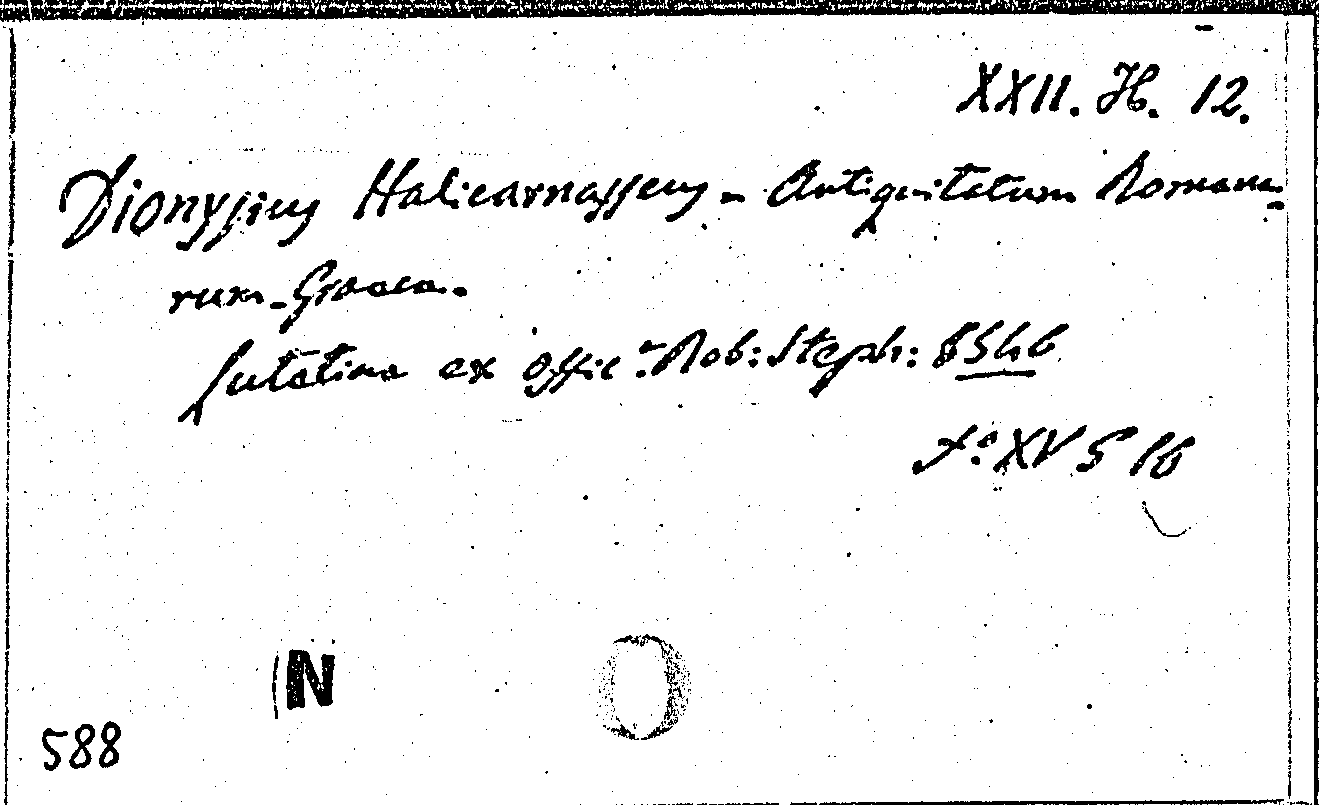 XXII. H. 12.
Dionysius Halicarnasseus - Antiquitatum Romana-
rum - Graeca.
Lutetiae ex offic:ª Rob: Steph: 1546
fº XV S 16
N
588